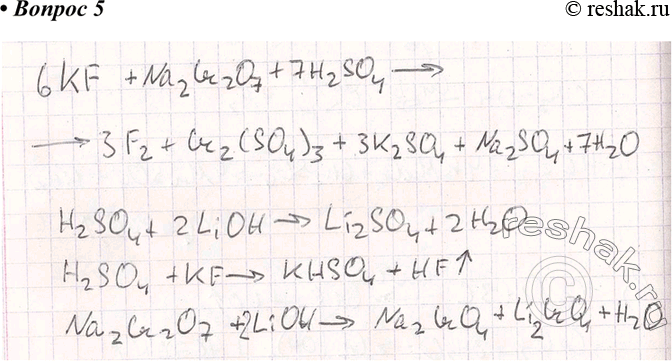 • Вопрос 5
© reshak.ru
6KF + Na₂Cr₂O₇ + 7H₂SO₄ ⟶
⟶ 3F₂ + Cr₂(SO₄)₃ + 3K₂SO₄ + Na₂SO₄ + 7H₂O
H₂SO₄ + 2LiOH → Li₂SO₄ + 2H₂O
H₂SO₄ + KF → KHSO₄ + HF↑
Na₂Cr₂O₇ + 2LiOH → Na₂CrO₄ + Li₂CrO₄ + H₂O
© reshak.ru